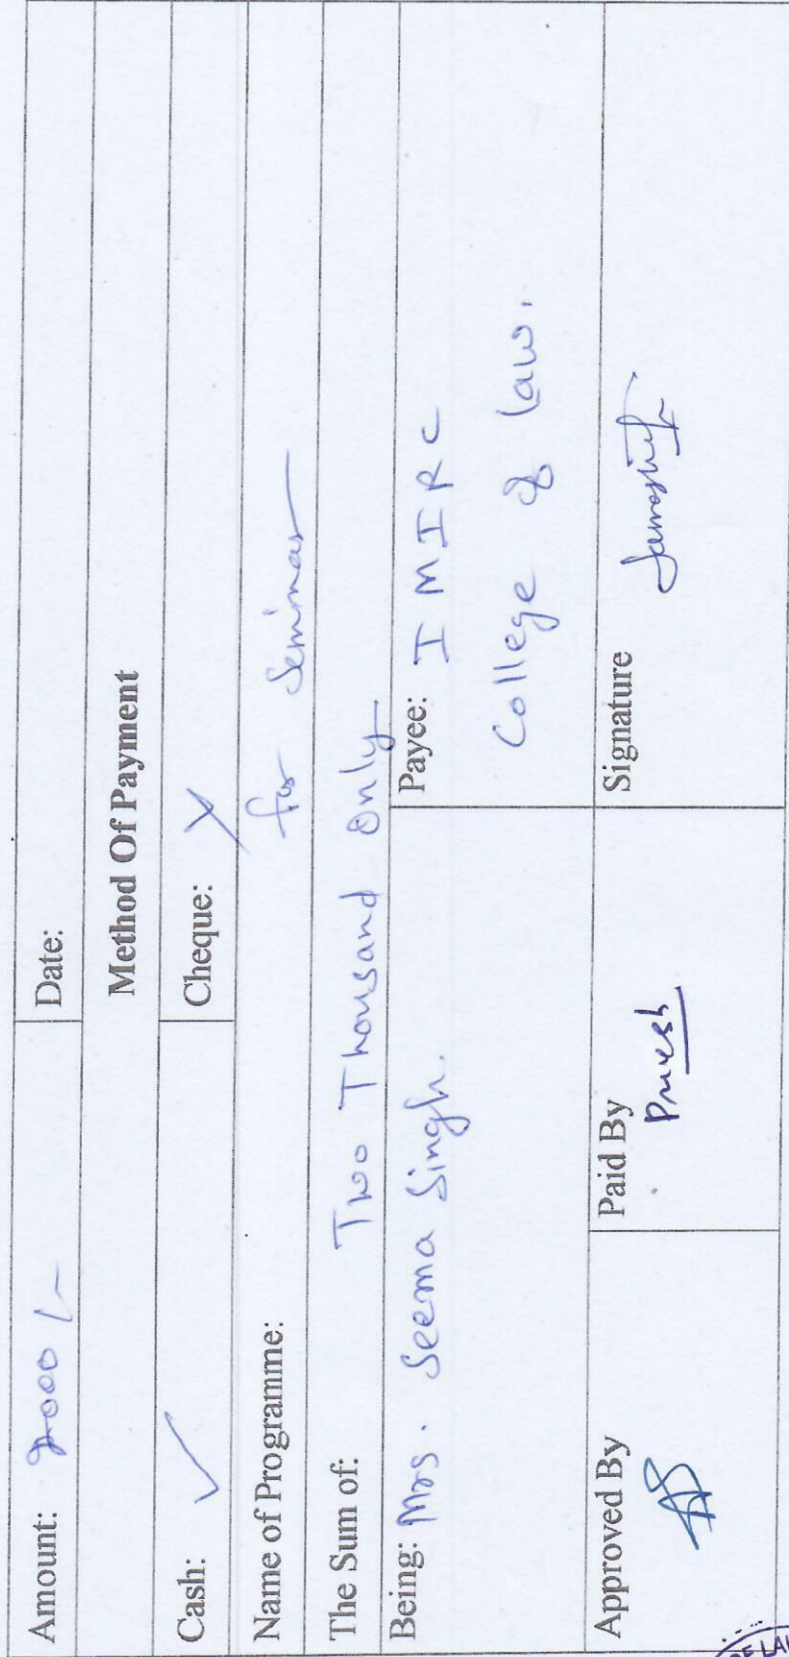 Amount: 2000/-
Date:
Method Of Payment
Cash: ✓
Cheque: X
Name of Programme: for Seminar
The Sum of: Two Thousand Only
Being: Mrs. Seema Singh.
Payee: IMIRC
College of law.
Approved By
Paid By
Signature